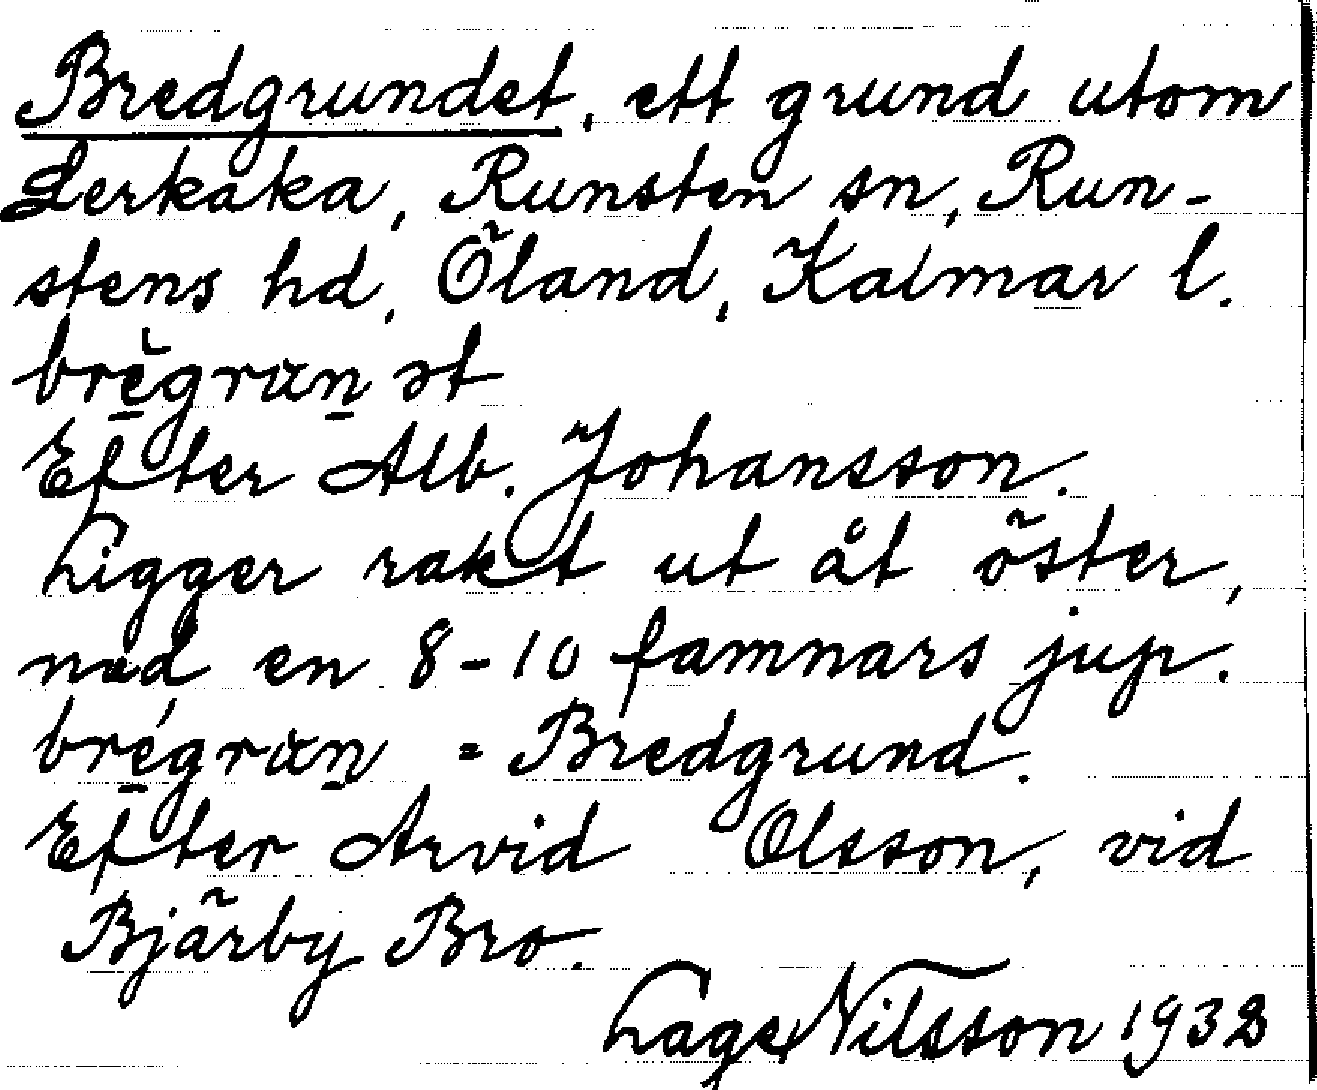 Bredgrundet, ett grund utom
Lerkaka, Runsten sn, Run-
stens hd, Öland, Kalmar l.
Efter Alb. Johansson.
Ligger rakt ut åt öster,
nad en 8-10 famnars jup.
= Bredgrund.
Efter Arvid Olsson, vid
Bjärby Bro.
Lage Nilsson 1932